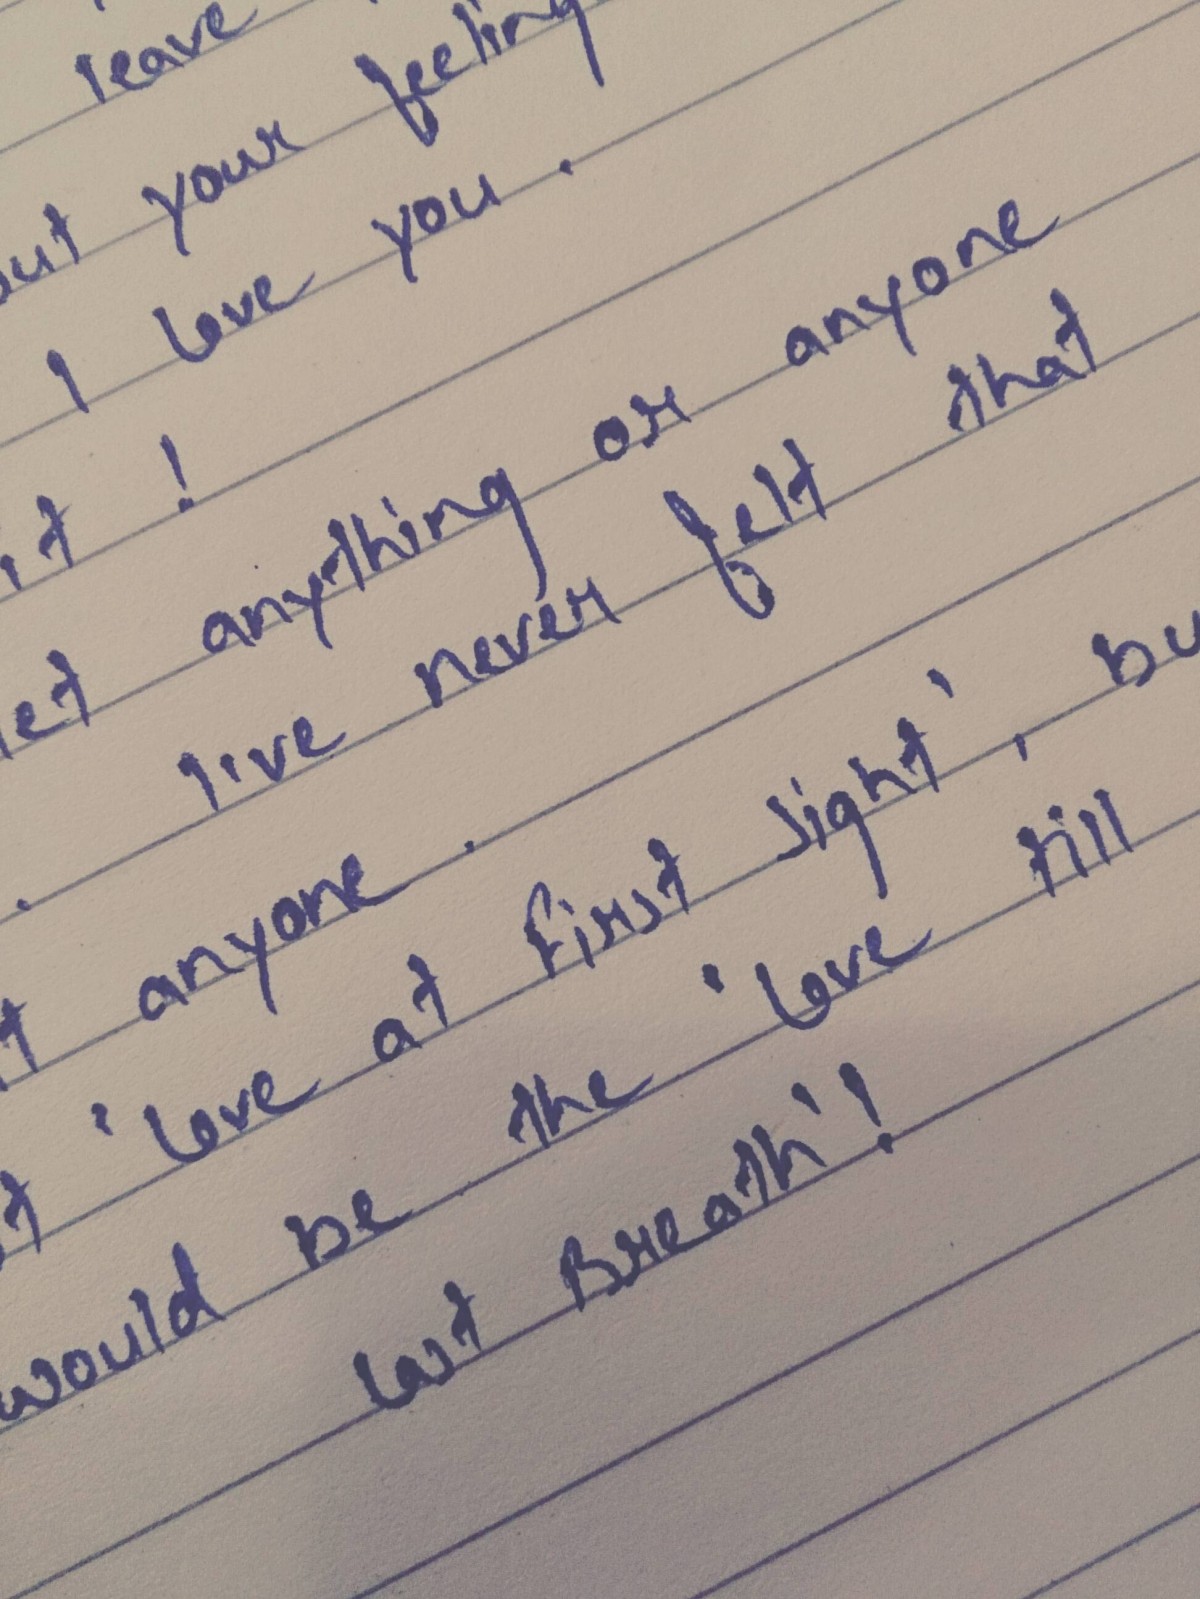 leave
your feeling
I love you.
!
anything or anyone
live never felt that
anyone.
'love at first sight',
would be the 'love till
last Breath'!